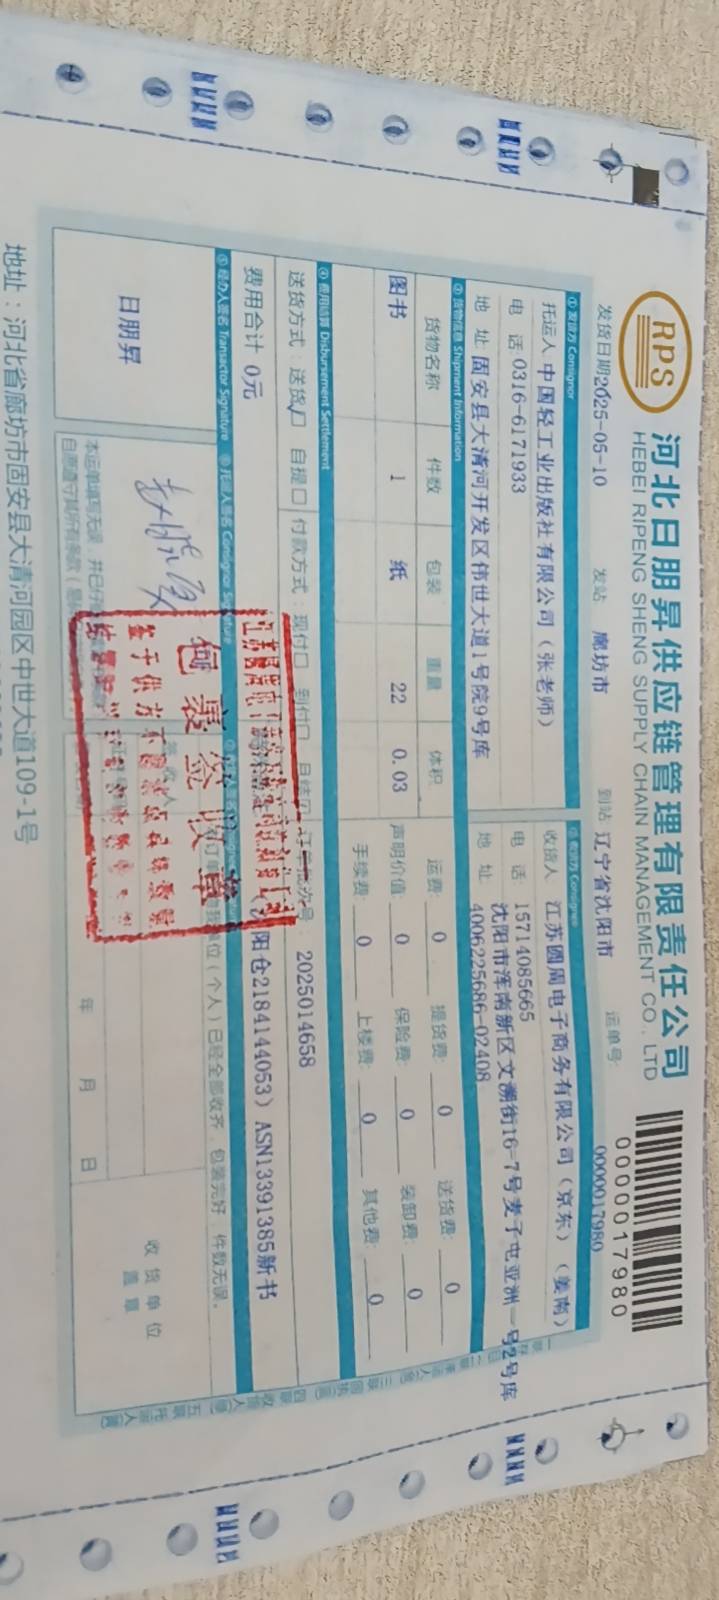 RPS
河北日朋昇供应链管理有限责任公司
HEBEI RIPENG SHENG SUPPLY CHAIN MANAGEMENT CO., LTD
0000017980
发货日期2025-05-10 发站 廊坊市 到站 辽宁省沈阳市 运单号: 0000017980
①发货方 Consignor
②收货方 Consignee
托运人 中国轻工业出版社有限公司(张老师)
收货人 江苏圆周电子商务有限公司(京东)(姜南)
电 话:0316-6171933
电 话: 15714085665
地 址 固安县大清河开发区伟世大道1号院9号库
地 址 沈阳市浑南新区文溯街16-7号麦子屯亚洲一号2号库
4006225686-02408
③货物信息 Shipment Information
货物名称 件数 包装 重量 体积
图书 1 纸 22 0.03
运费: 0 提货费: 0 送货费: 0
声明价值: 0 保险费: 0 装卸费: 0
手续费: 0 上楼费: 0 其他费: 0
④费用结算 Disbursement Settlement
送货方式:送货 自提 付款方式:现付 到付 月结 订单批次号: 2025014658
费用合计 0元
阳仓2184144053) ASN13391385新书
⑤经办人签名 Transactor Signature
⑥托运人签名 Consignor Signature
日朋昇
本运单填写无误,并已仔
自愿遵守其所有条款(是
单位(个人)已经全部收齐,包装完好,件数无误。
签收人
年 月 日
收货单位
盖章
包裹签收章
地址:河北省廊坊市固安县大清河园区中世大道109-1号